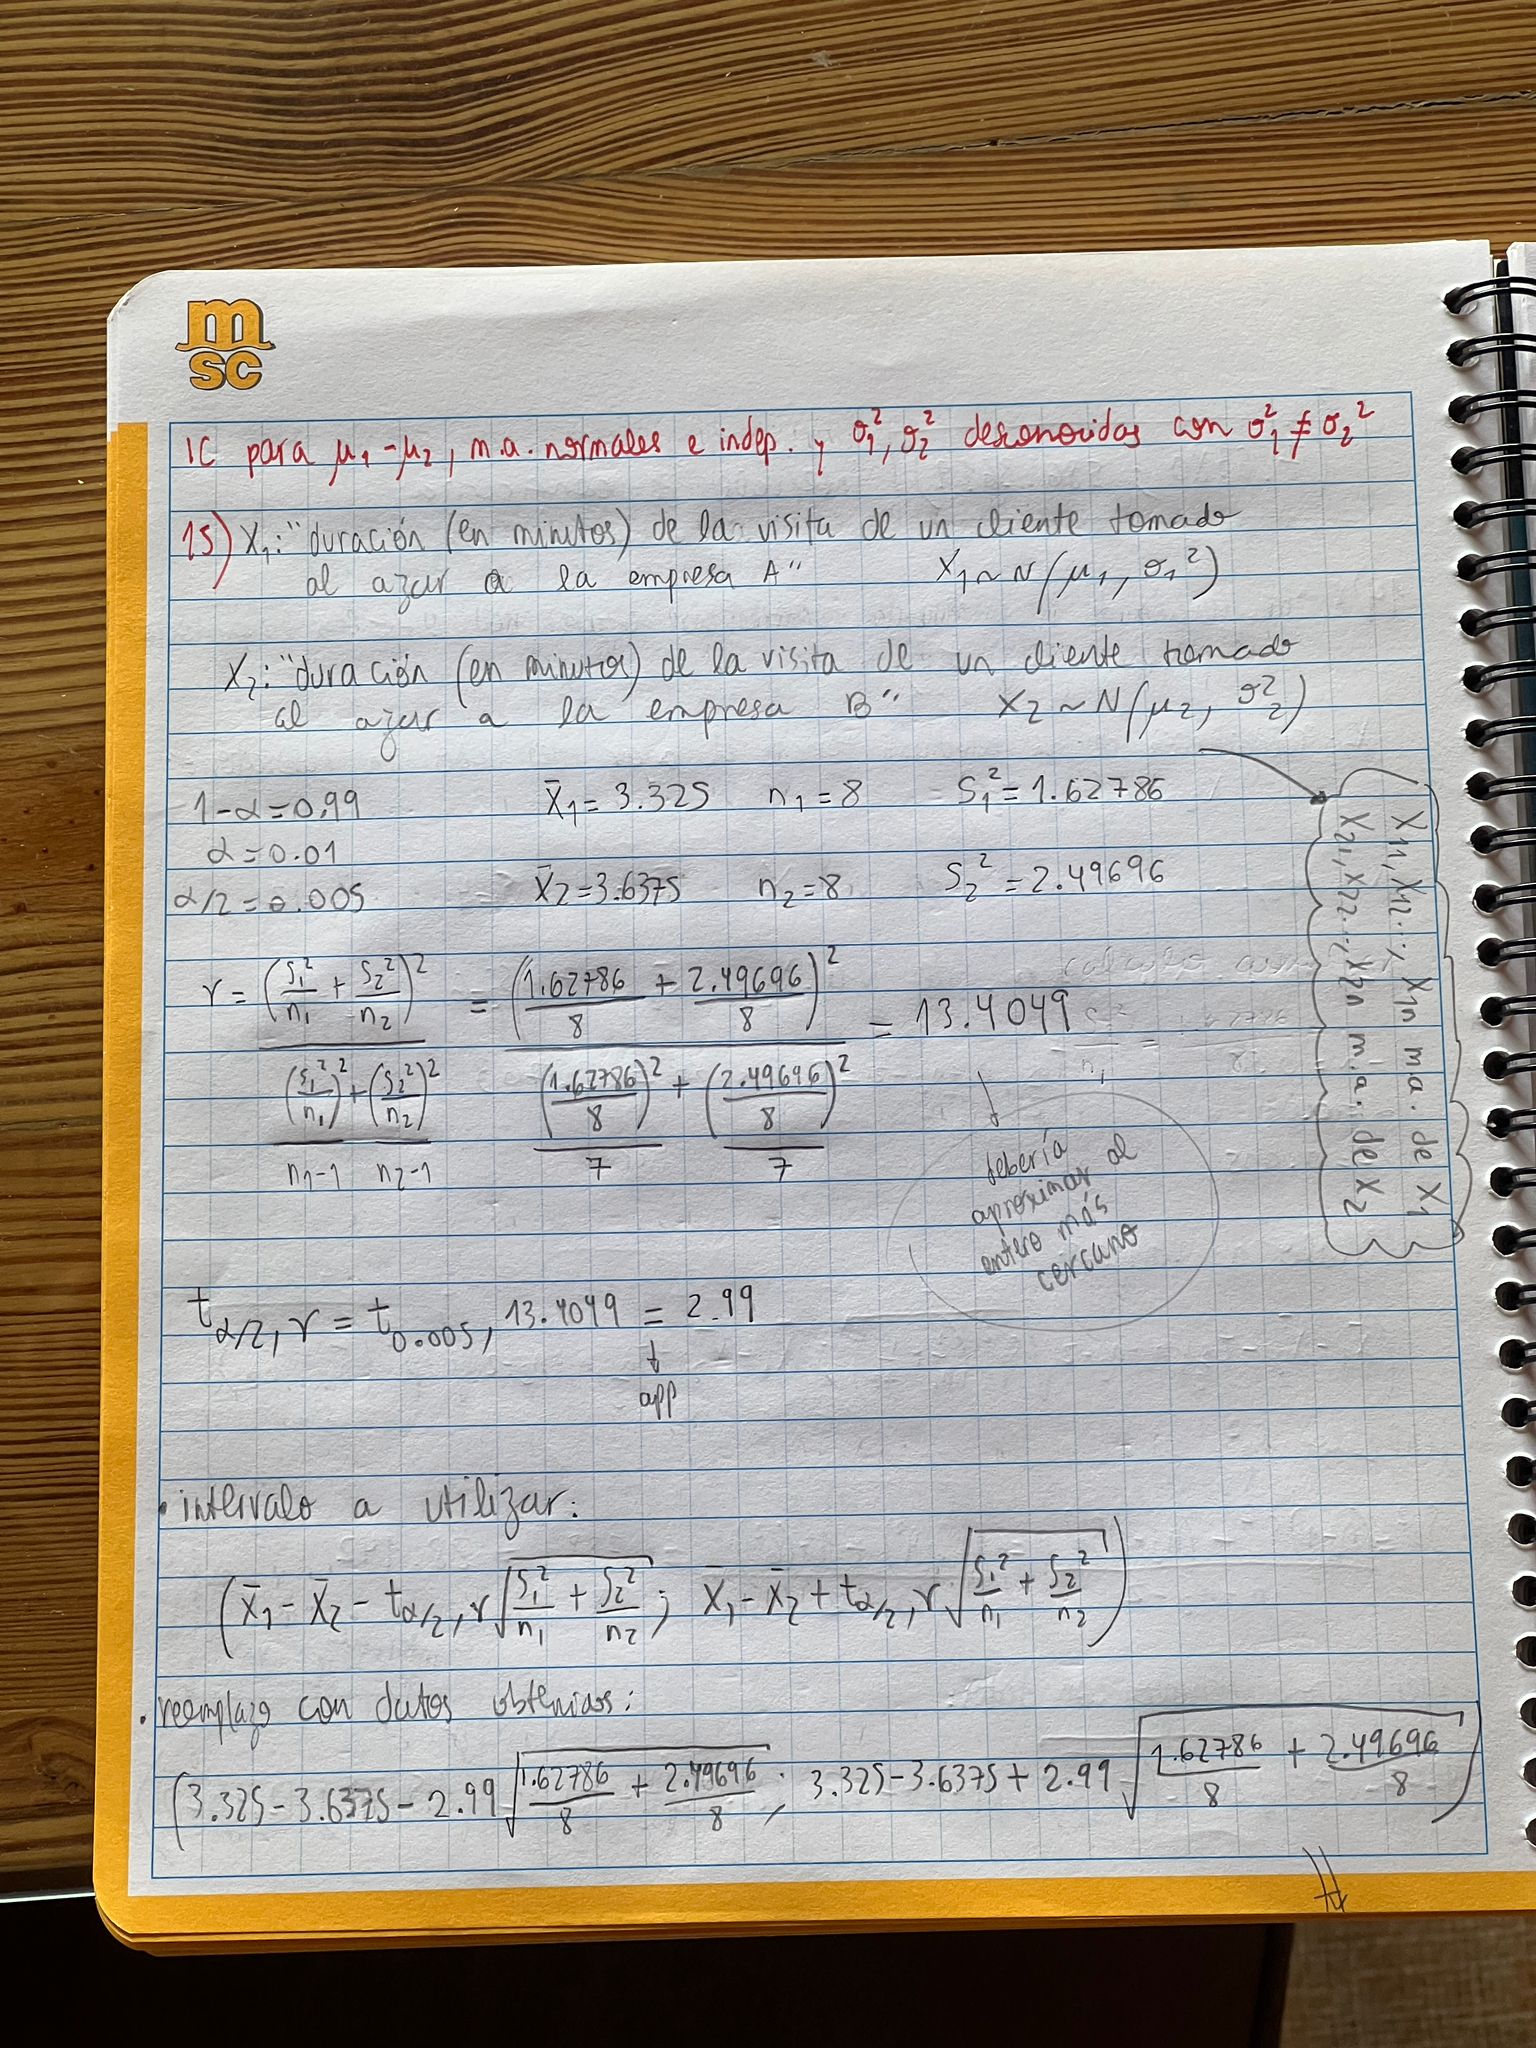 m
sc
IC para μ₁-μ₂, m.a. normales e indep. y σ₁², σ₂² desconocidas con σ₁² ≠ σ₂²
15) X₁: "duración (en minutos) de la visita de un cliente tomado
al azar a la empresa A" X₁ ~ N(μ₁, σ₁²)
X₂: "duración (en minutos) de la visita de un cliente tomado
al azar a la empresa B" X₂ ~ N(μ₂, σ₂²)
1-α=0.99 X̄₁=3.325 n₁=8 S₁²=1.62786
α=0.01
α/2=0.005 X̄₂=3.6375 n₂=8 S₂²=2.49696
X₁₁, X₁₂..., X₁n m.a. de X₁
X₂₁, X₂₂..., X₂n m.a. de X₂
r = (S₁²/n₁ + S₂²/n₂)² / ((S₁²/n₁)²/(n₁-1) + (S₂²/n₂)²/(n₂-1)) = (1.62786/8 + 2.49696/8)² / ((1.62786/8)²/7 + (2.49696/8)²/7) = 13.4049
debería
aproximar al
entero más
cercano
t α/2, r = t 0.005, 13.4049 = 2.99
app
• intervalo a utilizar:
(X̄₁ - X̄₂ - t α/2, r √(S₁²/n₁ + S₂²/n₂) ; X̄₁ - X̄₂ + t α/2, r √(S₁²/n₁ + S₂²/n₂))
• reemplazo con datos obtenidos:
(3.325-3.6375-2.99 √(1.62786/8 + 2.49696/8) ; 3.325-3.6375+2.99 √(1.62786/8 + 2.49696/8))